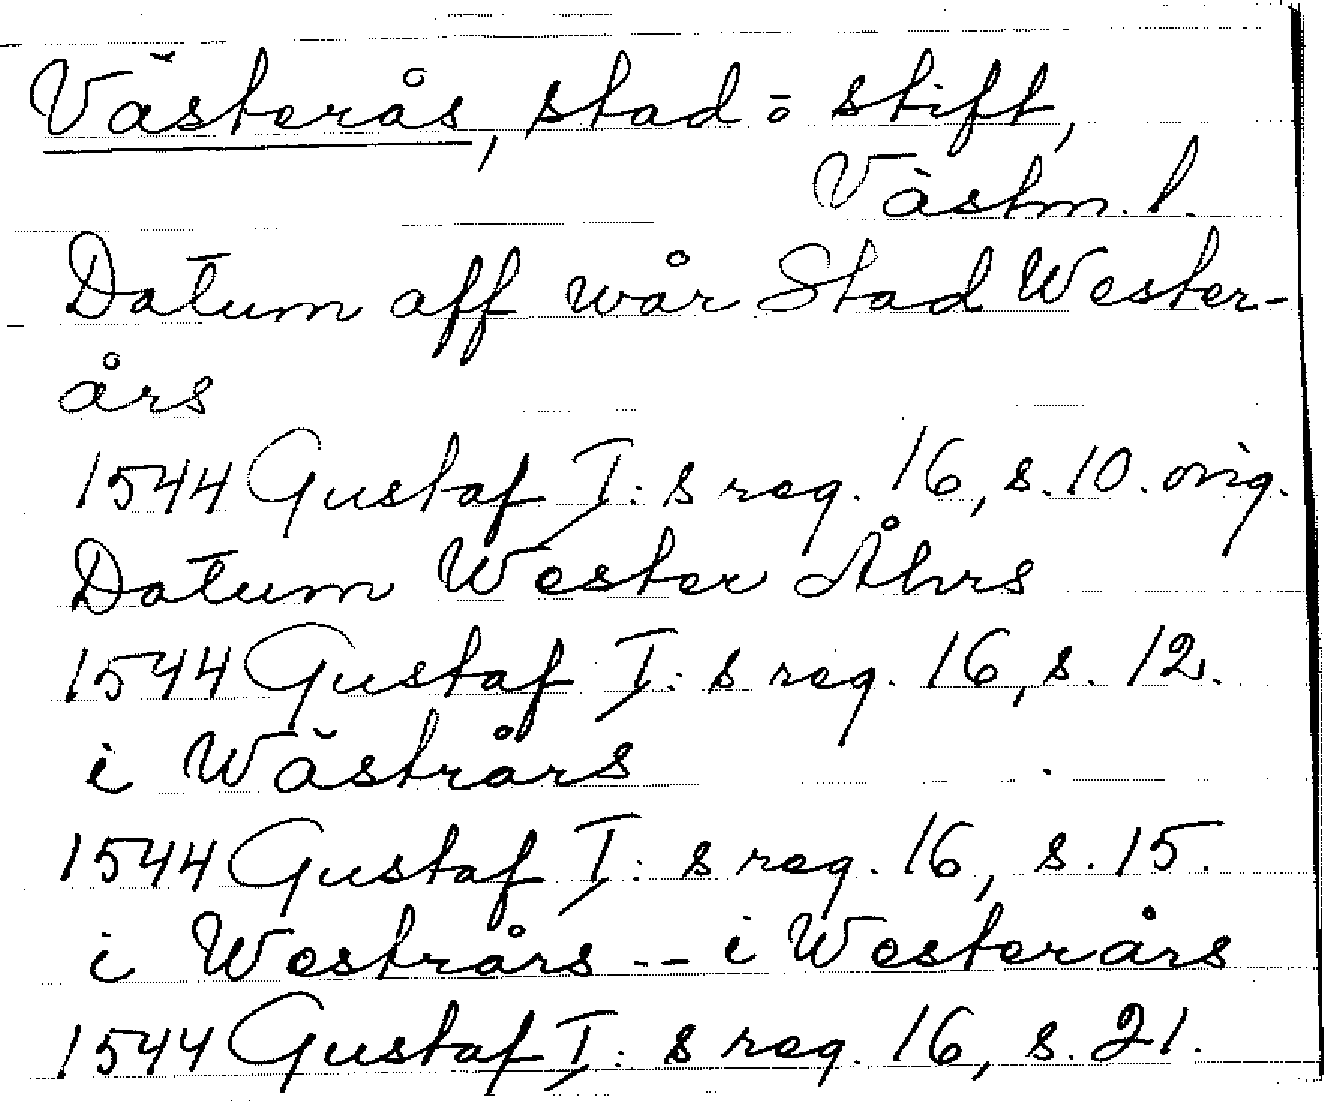 Västerås, stad o stift,
Västm. l.
Datum aff wår Stad Wester-
års
1544 Gustaf I: s reg. 16, s. 10. orig.
Datum Wester Åhrs
1544 Gustaf I: s reg. 16, s. 12.
i Wästrårs
1544 Gustaf I: s reg. 16, s. 15.
i Westrårs -- i Westerårs
1544 Gustaf I: s reg. 16, s. 21.